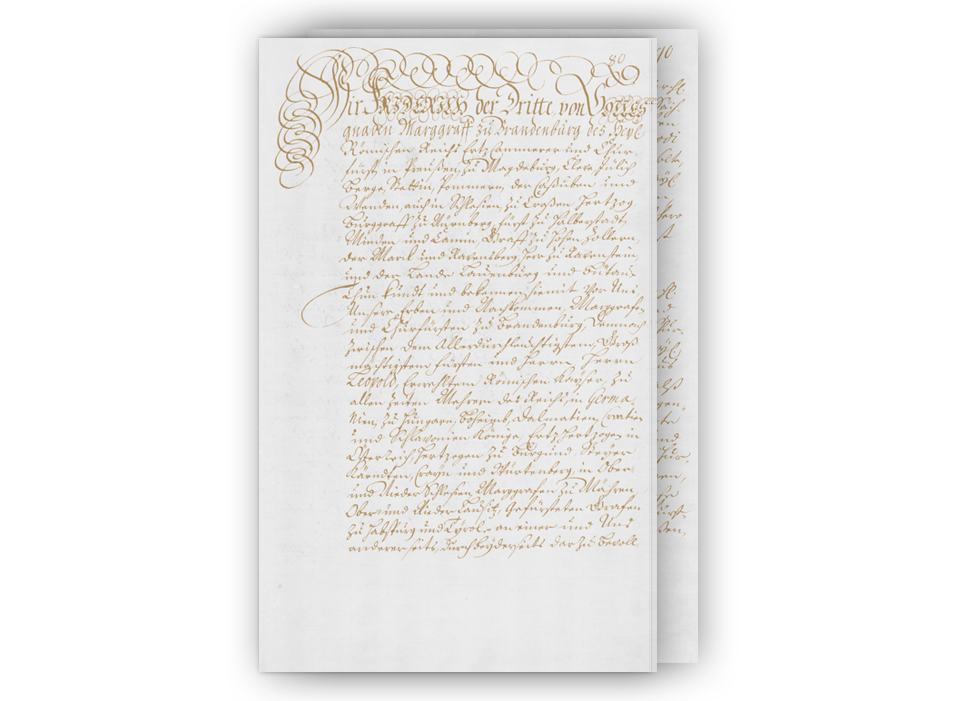 80
Wir FRIDERICH der Dritte von Gottes
gnaden Marggraff zu Brandenburg des Heyl.
Römischen Reichs Ertz Cammerer und Chur
fürst in Preußen, zu Magdeburg, Cleve, Jülich
Berge, Stettin, Pommern, der Caßuben und
Wenden, auch in Schlesien, zu Croßen Hertzog
Burggraff zu Nürnberg, Fürst zu Halberstadt
Minden und Camin, Graff zu Hohen Zollern,
der Marck und Ravensberg, Herr zu Ravenstein,
und der Lande Lauenburg und Bütau.
Thun kundt und bekennen hiemit vor Uns
Unsere Erben und Nachkommen Marggrafen
und Churfürsten zu Brandenburg, Demnach
zwischen dem Allerdurchlauchtigstem, Groß
mächtigstem Fürsten und Herrn, Herrn
Leopold, Erwehltem Römischen Kayser, zu
allen Zeiten Mehrern des Reichs, in Germa
nien, zu Hungarn, Böheimb, Dalmatien, Croatien
und Sclavonien Könige, Ertz Hertzogen in
Österreich, Hertzogen zu Burgund, Steyer
Kärndten, Crayn und Würtenberg, in Ober
und Nieder Schlesien, Marggrafen zu Mähren,
Ober und Nieder Lausitz, Gefürsteten Grafen
zu Habspurg und Tyrol, an einer und Uns
anderer seits, durch beyderseits darzu bevoll